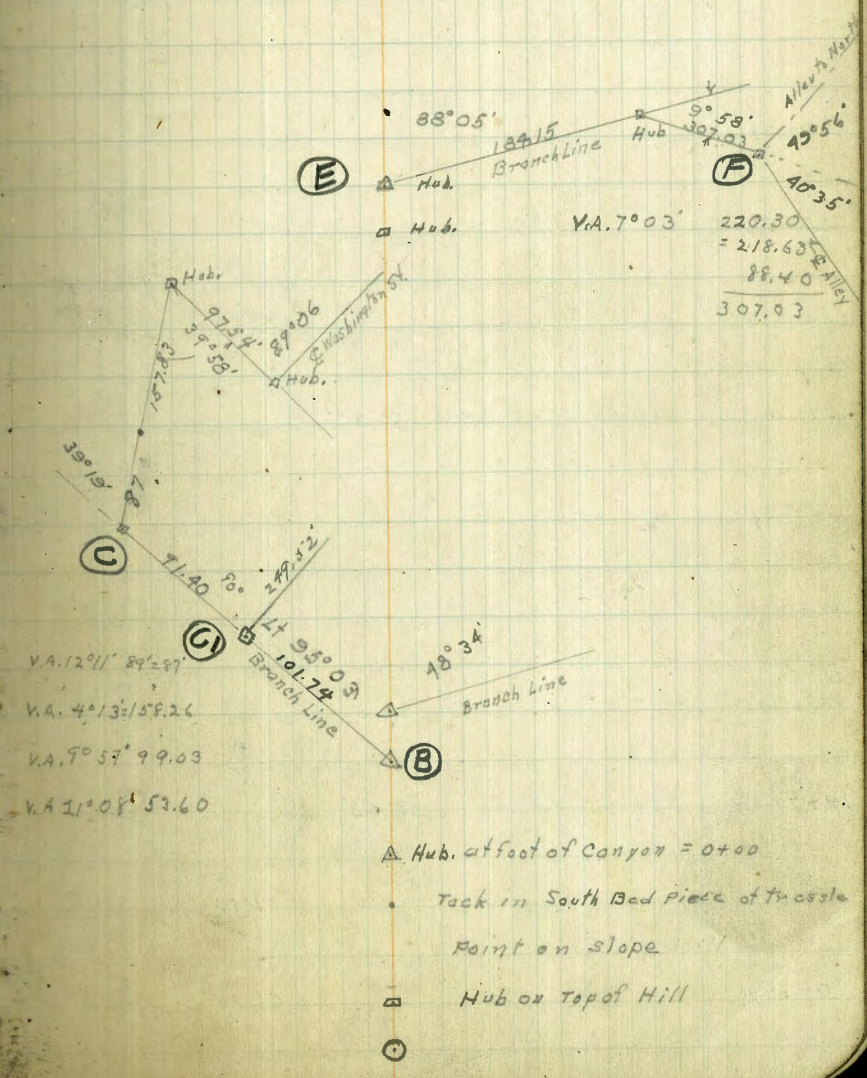 Alley to North
88°05'
9°58'
184.15
Hub
307.03
49°56'
Branch Line
E
Hub.
F
40°35'
Hub.
V.A. 7°03'
220.30
= 218.63
88.40
307.03
℄ Alley
Hub.
97.54'
39°58'
89°06
℄ Washington St.
Hub.
157.83
87
39°19'
C
91.40
90°
249.52'
C1
Lt 95°03'
101.74
Branch Line
48°34'
Branch Line
B
V.A. 12°11' 89'=87'
V.A. 4°13'=158.26
V.A. 9°57' 99.03
V.A 11°08' 53.60
Hub. at foot of Canyon = 0+00
Tack in South Bed Piece of tressle
Point on slope
Hub on Top of Hill